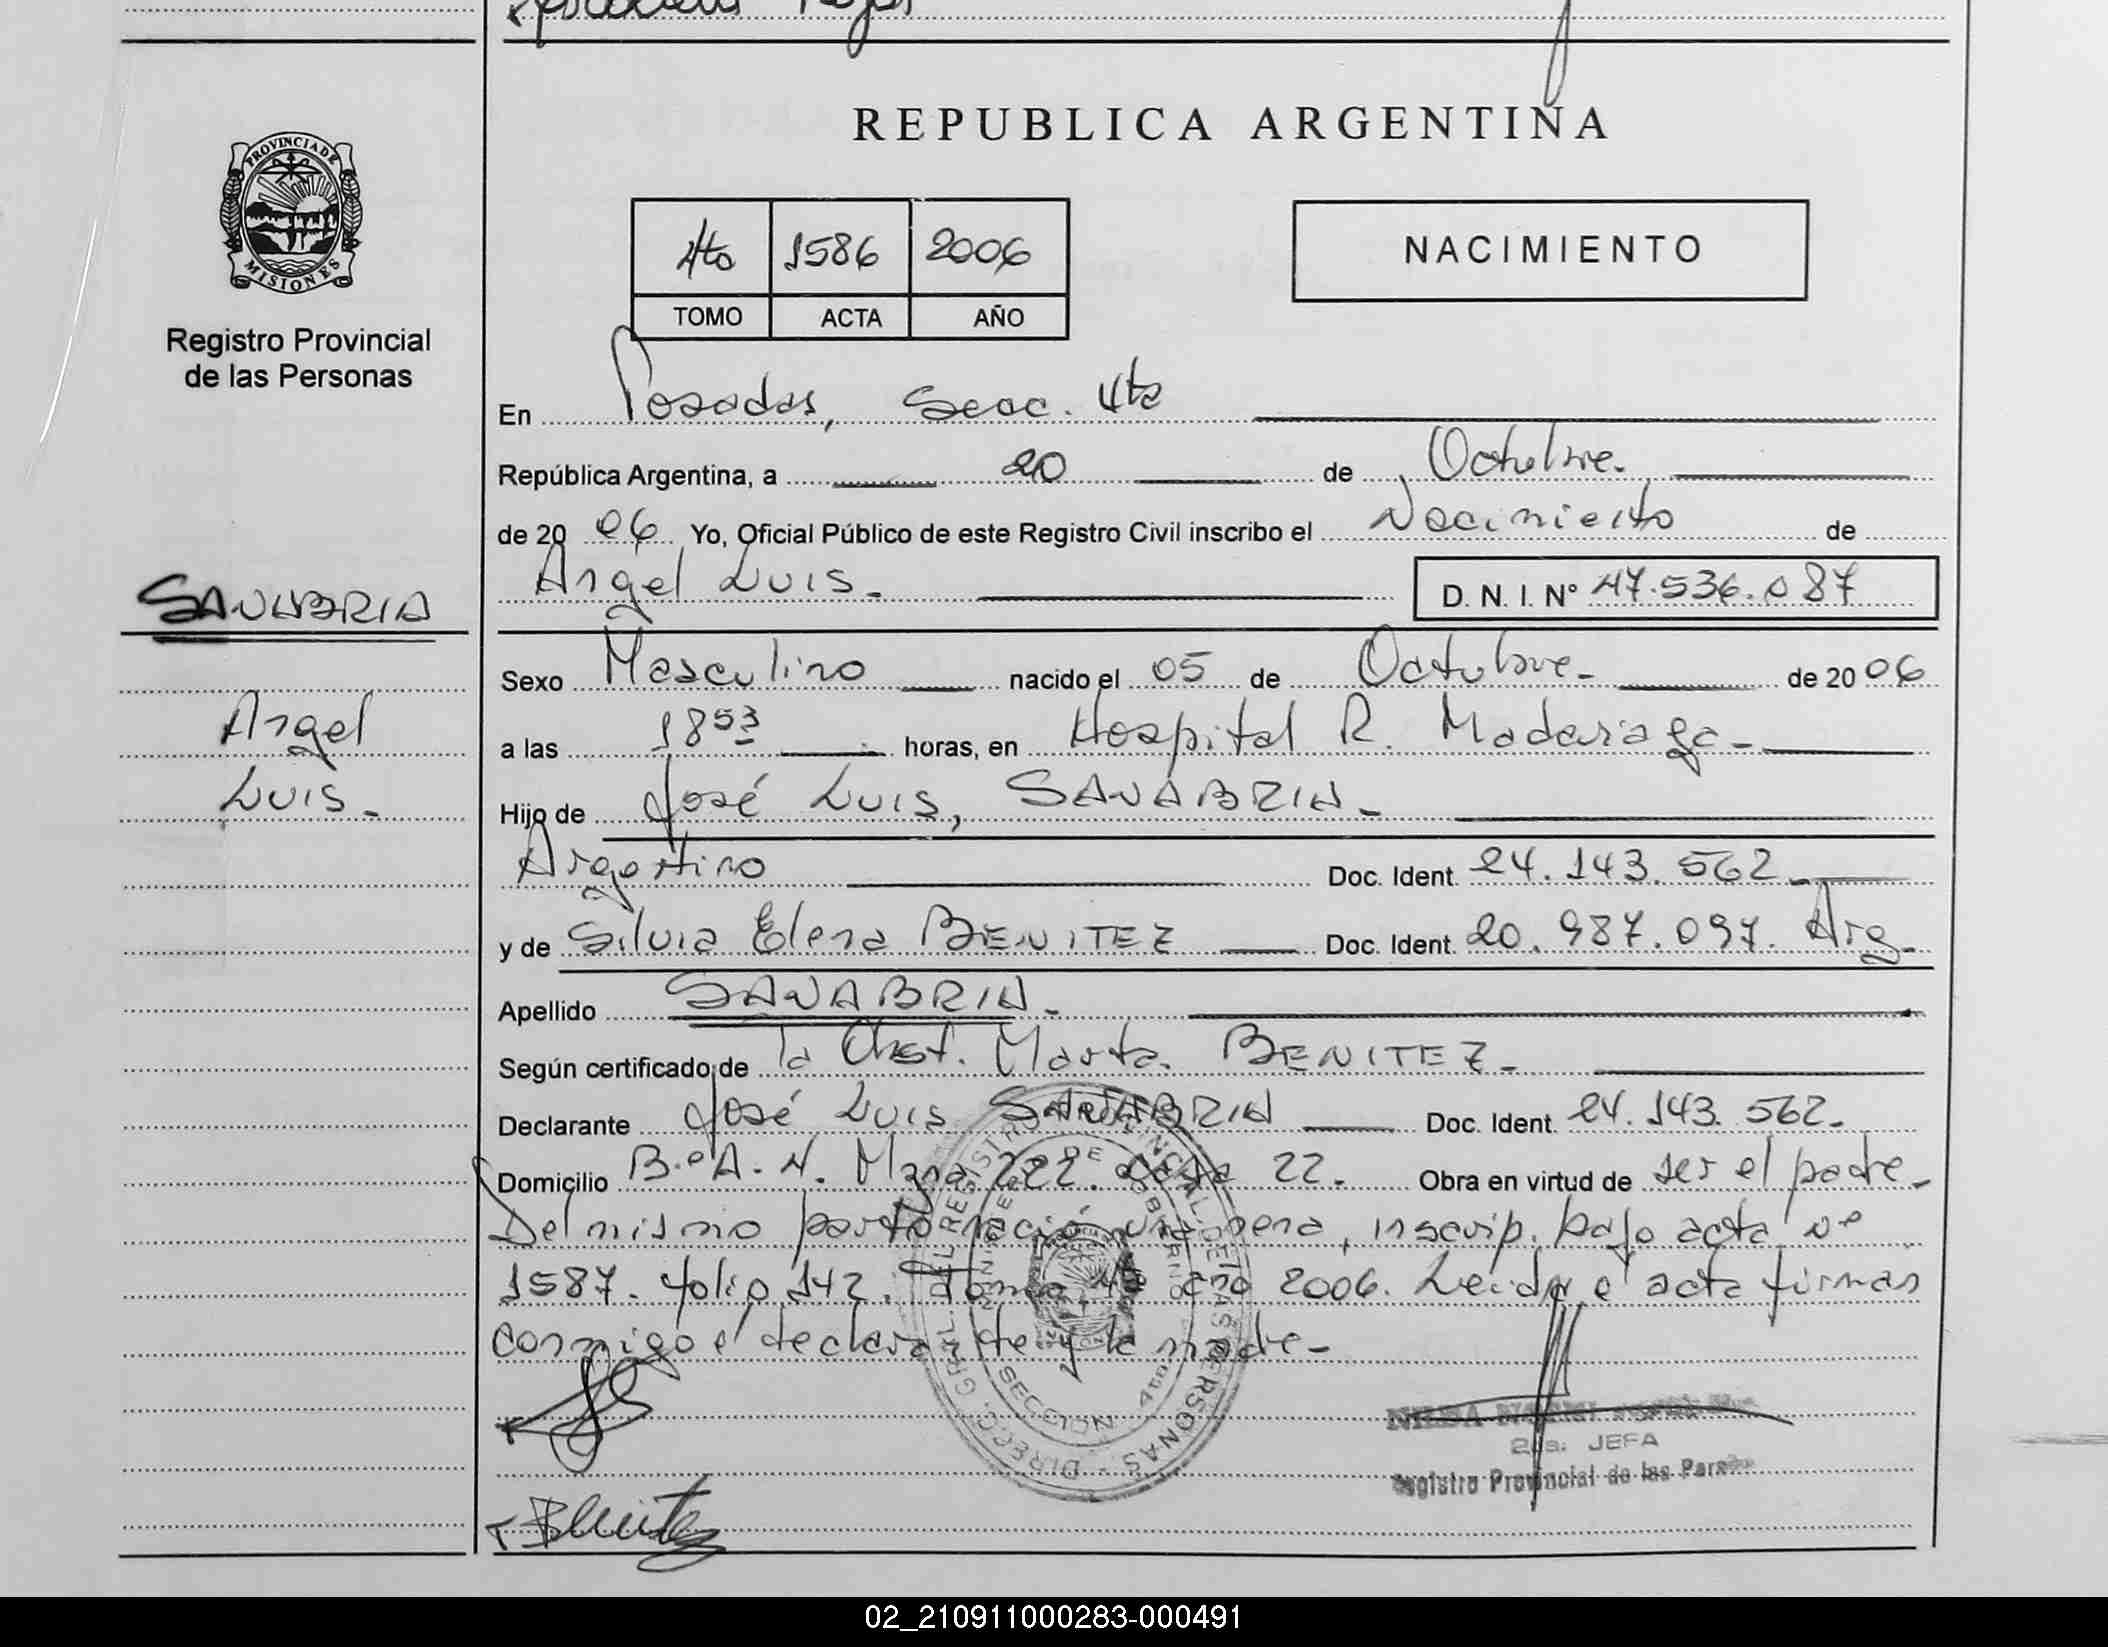 REPUBLICA ARGENTINA
PROVINCIA DE
MISIONES
Registro Provincial
de las Personas
4to 1586 2006
TOMO ACTA AÑO
NACIMIENTO
En Posadas, Secc. 4ta
República Argentina, a 20 de Octubre.
de 2006 Yo, Oficial Público de este Registro Civil inscribo el Nacimiento de
Angel Luis. D. N. I. Nº 47.536.087
SANABRIA
Angel
Luis.-
Sexo Masculino nacido el 05 de Octubre- de 2006
a las 18 53 horas, en Hospital R. Madariaga-
Hijo de José Luis, SANABRIA-
Argentino Doc. Ident. 24.143.562-
y de Silvia Elena BENITEZ Doc. Ident. 20.987.097. Arg-
Apellido SANABRIA-
Según certificado de la Obst. Marta BENITEZ-
Declarante José Luis SANABRIA Doc. Ident. 24.143.562-
Domicilio Bº A. N. Mzna 222. Casa 22. Obra en virtud de ser el padre-
Del mismo parto nació una nena, inscrip. bajo acta nº
1587. folio 142. Tomo 4to año 2006. Leida el acta firman
conmigo el declarante y la madre-
DIRECC. GRAL. DEL REGISTRO PROVINCIAL DE LAS PERSONAS
MINISTERIO DE GOBIERNO
SECCION 4ta
2da. JEFA
Registro Provincial de las
Benitez
02_210911000283-000491